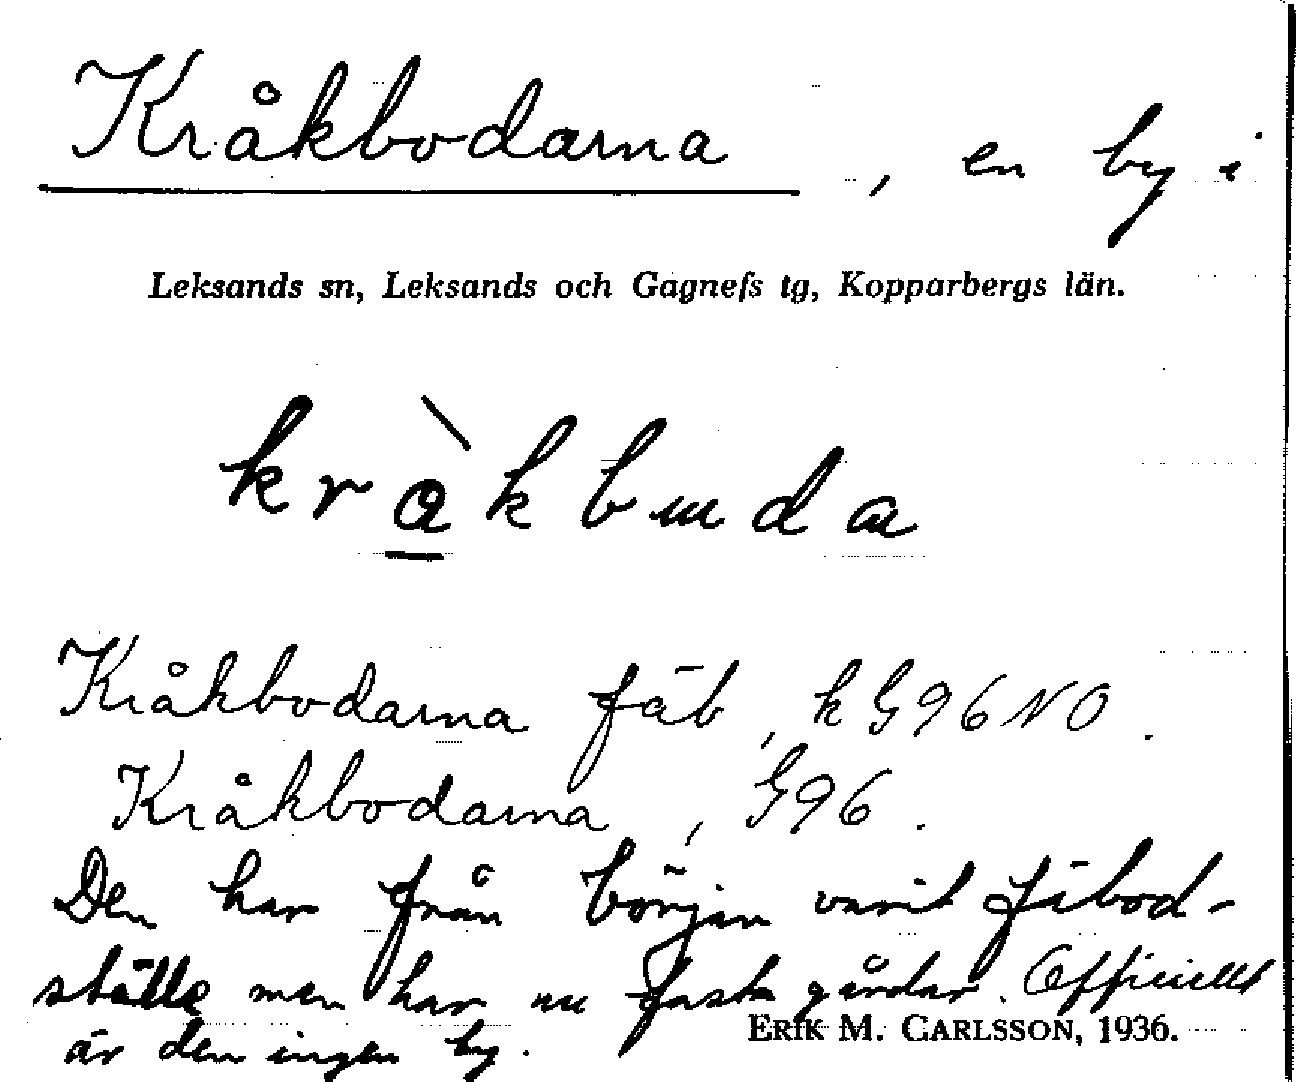 Kråkbodarna, en by i
Leksands sn, Leksands och Gagnefs tg, Kopparbergs län.
krà̲kbuda
Kråkbodarna fäb, kG96NO.
Kråkbodarna, G96.
Den har från början varit fäbod-
ställe men har nu fasta gårdar. Officiellt
är den ingen by.
ERIK M. CARLSSON, 1936.